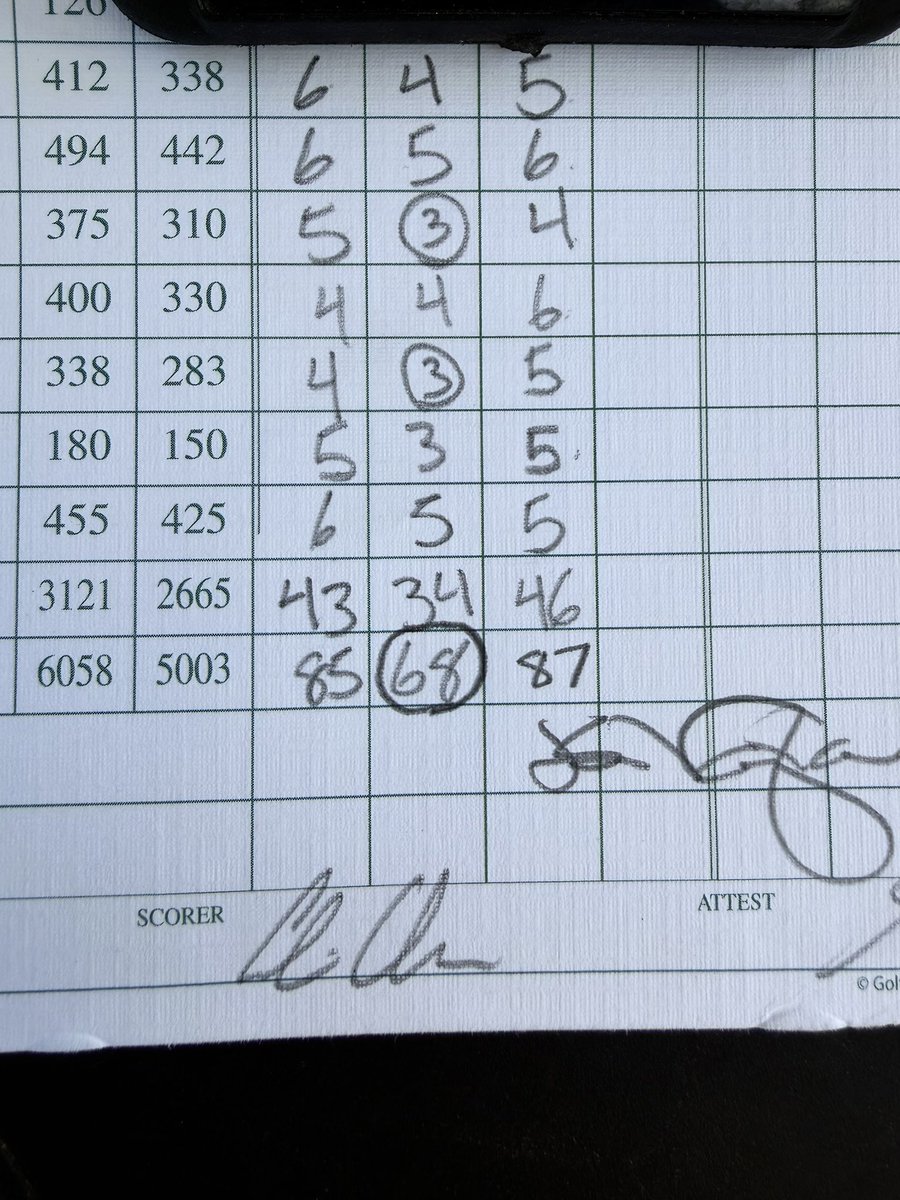 126
412 338 6 4 5
494 442 6 5 6
375 310 5 3 4
400 330 4 4 6
338 283 4 3 5
180 150 5 3 5
455 425 6 5 5
3121 2665 43 34 46
6058 5003 85 68 87
SCORER ATTEST
© Gol